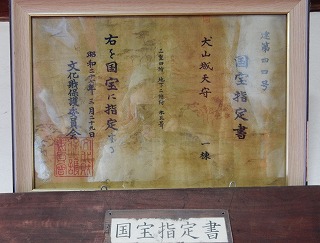 建第四四号
国宝指定書
犬山城天守 一棟
三重四階、地下二階付、本瓦葺
右を国宝に指定する
昭和二十七年三月二十九日
文化財保護委員会
国宝指定書